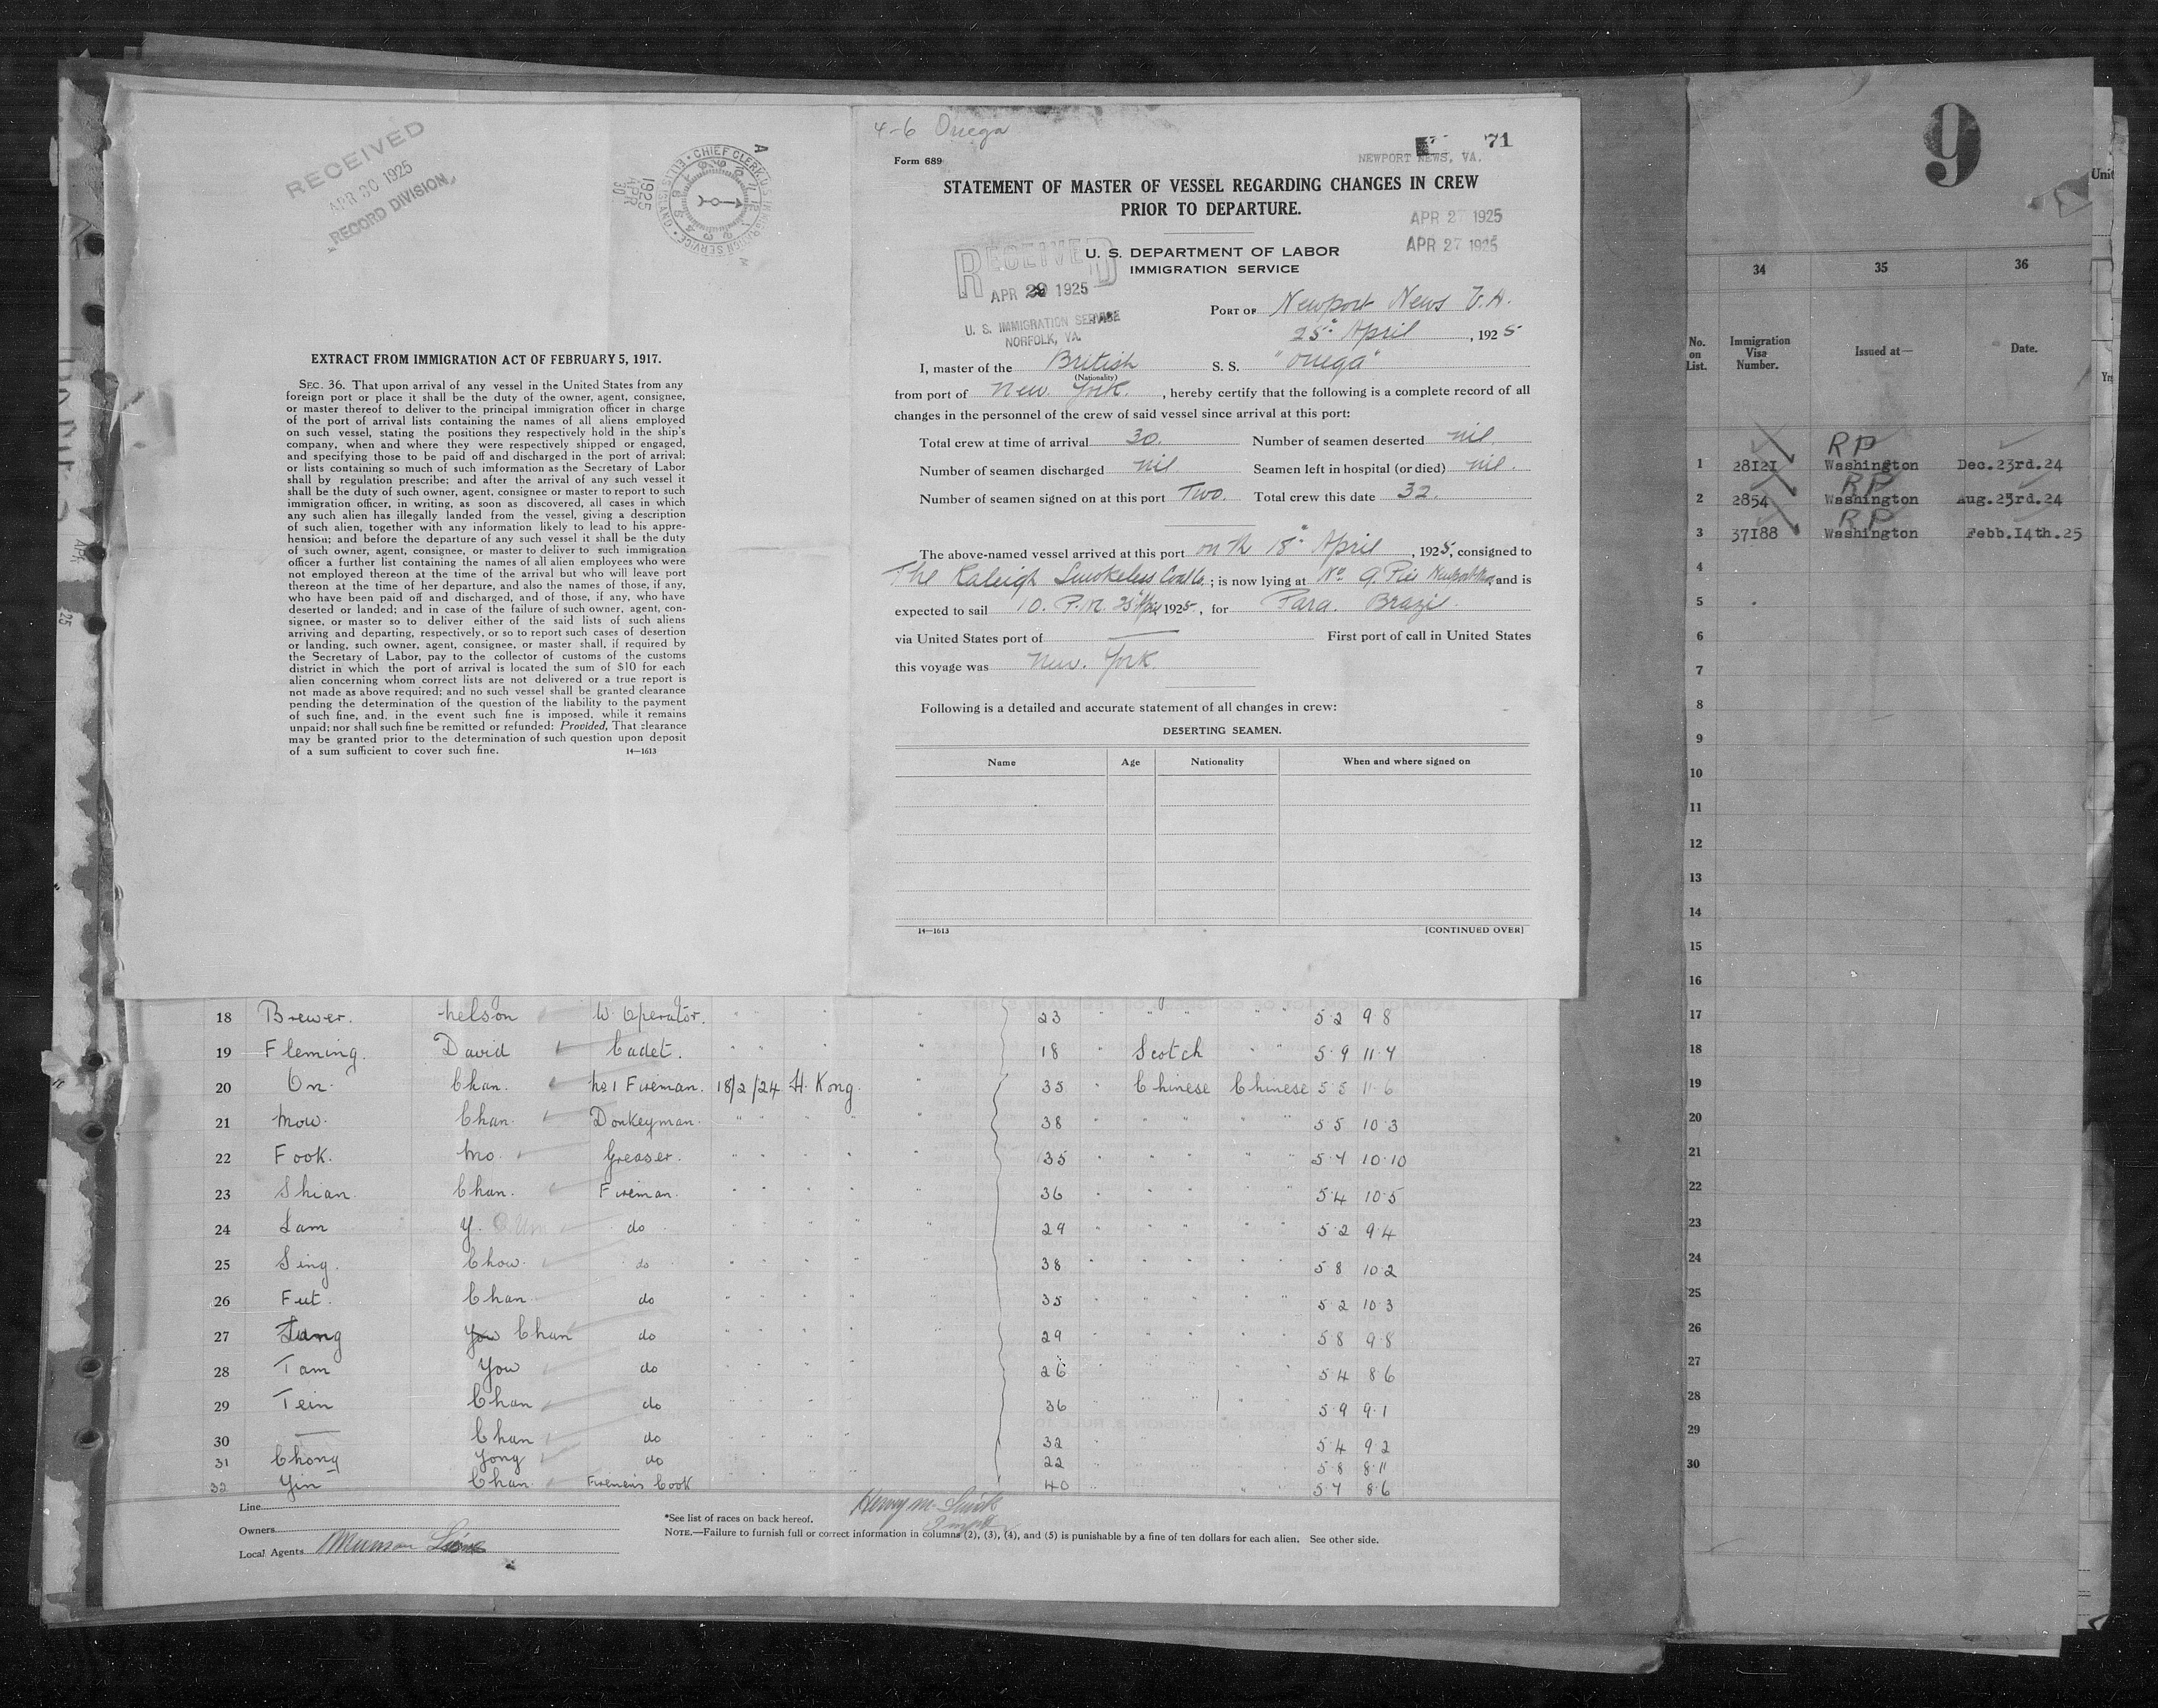 RECEIVED
APR 30 1925
RECORD DIVISION
CHIEF CLERK U.S. IMMIGRATION SERVICE ELLIS ISLAND
1925
APR
30
EXTRACT FROM IMMIGRATION ACT OF FEBRUARY 5, 1917.
SEC. 36. That upon arrival of any vessel in the United States from any
foreign port or place it shall be the duty of the owner, agent, consignee,
or master thereof to deliver to the principal immigration officer in charge
of the port of arrival lists containing the names of all aliens employed
on such vessel, stating the positions they respectively hold in the ship's
company, when and where they were respectively shipped or engaged,
and specifying those to be paid off and discharged in the port of arrival;
or lists containing so much of such imformation as the Secretary of Labor
shall by regulation prescribe; and after the arrival of any such vessel it
shall be the duty of such owner, agent, consignee or master to report to such
immigration officer, in writing, as soon as discovered, all cases in which
any such alien has illegally landed from the vessel, giving a description
of such alien, together with any information likely to lead to his appre-
hension; and before the departure of any such vessel it shall be the duty
of such owner, agent, consignee, or master to deliver to such immigration
officer a further list containing the names of all alien employees who were
not employed thereon at the time of the arrival but who will leave port
thereon at the time of her departure, and also the names of those, if any,
who have been paid off and discharged, and of those, if any, who have
deserted or landed; and in case of the failure of such owner, agent, con-
signee, or master so to deliver either of the said lists of such aliens
arriving and departing, respectively, or so to report such cases of desertion
or landing, such owner, agent, consignee, or master shall, if required by
the Secretary of Labor, pay to the collector of customs of the customs
district in which the port of arrival is located the sum of $10 for each
alien concerning whom correct lists are not delivered or a true report is
not made as above required; and no such vessel shall be granted clearance
pending the determination of the question of the liability to the payment
of such fine, and, in the event such fine is imposed, while it remains
unpaid; nor shall such fine be remitted or refunded: Provided, That clearance
may be granted prior to the determination of such question upon deposit
of a sum sufficient to cover such fine. 14—1613
4-6 Onega
71
Form 689
NEWPORT NEWS, VA.
STATEMENT OF MASTER OF VESSEL REGARDING CHANGES IN CREW
PRIOR TO DEPARTURE.
APR 27 1925
APR 27 1925
U. S. DEPARTMENT OF LABOR
IMMIGRATION SERVICE
RECEIVED
APR 29 1925
U. S. IMMIGRATION SERVICE
NORFOLK, VA.
PORT OF Newport News V.A.
25th April, 1925
I, master of the British S. S. "Onega"
(Nationality)
from port of New York, hereby certify that the following is a complete record of all
changes in the personnel of the crew of said vessel since arrival at this port:
Total crew at time of arrival 30. Number of seamen deserted nil.
Number of seamen discharged nil. Seamen left in hospital (or died) nil.
Number of seamen signed on at this port Two. Total crew this date 32.
The above-named vessel arrived at this port on the 18th April, 1925, consigned to
The Raleigh Smokeless Coal Co; is now lying at No. 9 Pier Newport News, and is
expected to sail 10. P.M. 25 Apl 1925, for Para. Brazil.
via United States port of — First port of call in United States
this voyage was New York.
Following is a detailed and accurate statement of all changes in crew:
DESERTING SEAMEN.
Name Age Nationality When and where signed on
14—1613 [CONTINUED OVER]
18 Brewer. Nelson W. Operator. " " " 23 " " " " " 5·2 9·8
19 Fleming. David Cadet. " " " " 18 " Scotch " " 5·9 11·4
20 On. Chan. No 1 Fireman. 18/2/24 H. Kong. " 35 " Chinese Chinese 5·5 11·6
21 Mow. Chan. Donkeyman. " " " " 38 " " " " " 5·5 10·3
22 Fook. Mo. Greaser. " " " " 35 " " " " " 5·7 10·10
23 Shian. Chan. Fireman. " " " " 36 " " " " " 5·4 10·5
24 Lam Y. do " " " " " 29 " " " " " 5·2 9·4
25 Sing. Chow. do " " " " " 38 " " " " " 5·8 10·2
26 Fut. Chan do " " " " " 35 " " " " " 5·2 10·3
27 Tang You Chan do " " " " 29 " " " " " 5·8 9·8
28 Tam You do " " " " 26 " " " " 5·4 8·6
29 Tein Chan do " " " " 36 " " " " 5·9 9·1
30 — Chan do " " " 32 " " " 5·4 9·2
31 Chong Yong do " " 22 " 5·8 8·11
32 Yin Chan. Firemens Cook " " " 40 " " " 5·7 8·6
Line
Owners
Local Agents Munson Line
*See list of races on back hereof.
NOTE.—Failure to furnish full or correct information in columns (2), (3), (4), and (5) is punishable by a fine of ten dollars for each alien. See other side.
9
34 35 36
No. on List. Immigration Visa Number. Issued at— Date.
RP
1 28121 Washington Dec.23rd.24
RP
2 2854 Washington Aug.23rd.24
RP
3 37188 Washington Febb.14th.25
4
5
6
7
8
9
10
11
12
13
14
15
16
17
18
19
20
21
22
23
24
25
26
27
28
29
30
Unit
Yrs